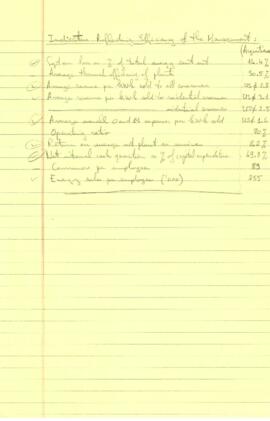 Indicators Reflecting Efficiency of the Management:
System loss as % of total energy sent out 14.4%
Average thermal efficiency of plants 30.5%
Average revenue per kWh sold to all consumers US¢ 2.8
Average revenue per kWh sold to residential consumers US¢
industrial consumers US¢ 2.5
Average annual O and M expenses per kWh sold US¢ 1.6
Operating ratio 80%
Return on average net plant in service 6.2%
Net internal cash generation as % of capital expenditure
Consumers per employee 89
Energy sales per employee 255